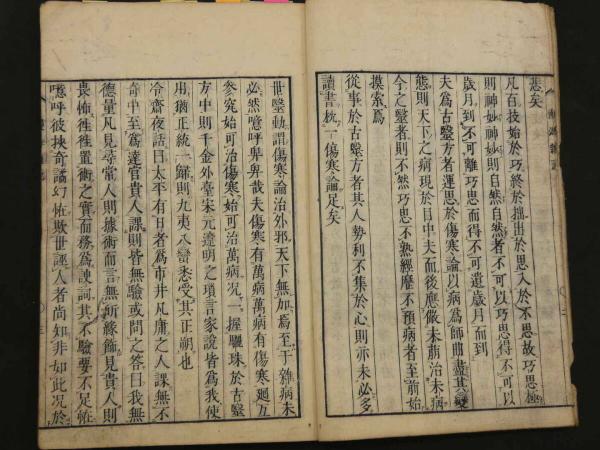 悲矣
凡百技始於巧終於拙出於思入於不思故巧思極
則神妙神妙則自然自然者不可以巧思得不可以
歲月到不可離巧思而得不可遣歲月而到
夫爲古醫方者運思於傷寒論以病爲師曲盡其變
態則天下之病現於目中夫而後應做未萠治未病
今之醫者則不然巧思不熟經歷不預病者至前始
摸索焉
從事於古醫方者其人勢利不集於心則亦未必多
讀書枕一傷寒論足矣
世醫動謂傷寒論治外邪天下無加焉至于雜病未
必然噫呼舁舁哉夫傷寒有萬病萬病有傷寒廻互
參究始可治傷寒始可治萬病况一握驪珠於古醫
方中則千金外臺宋元遼明之瑣言家說皆爲我使
用猶正統一歸則九夷八蠻悉受其正朔也
令齋夜話曰太平有日者爲市井凡庸之人課無不
奇中至爲達官貴人課則皆無驗或問之答曰我無
德量凡見尋常人則據術而言無所緣飾見貴人則
畏怖徃徃置術之實而務爲諛詞其不驗要不足恠
噫呼彼挾奇譎幻恠欺世誣人者尚知非如此况於